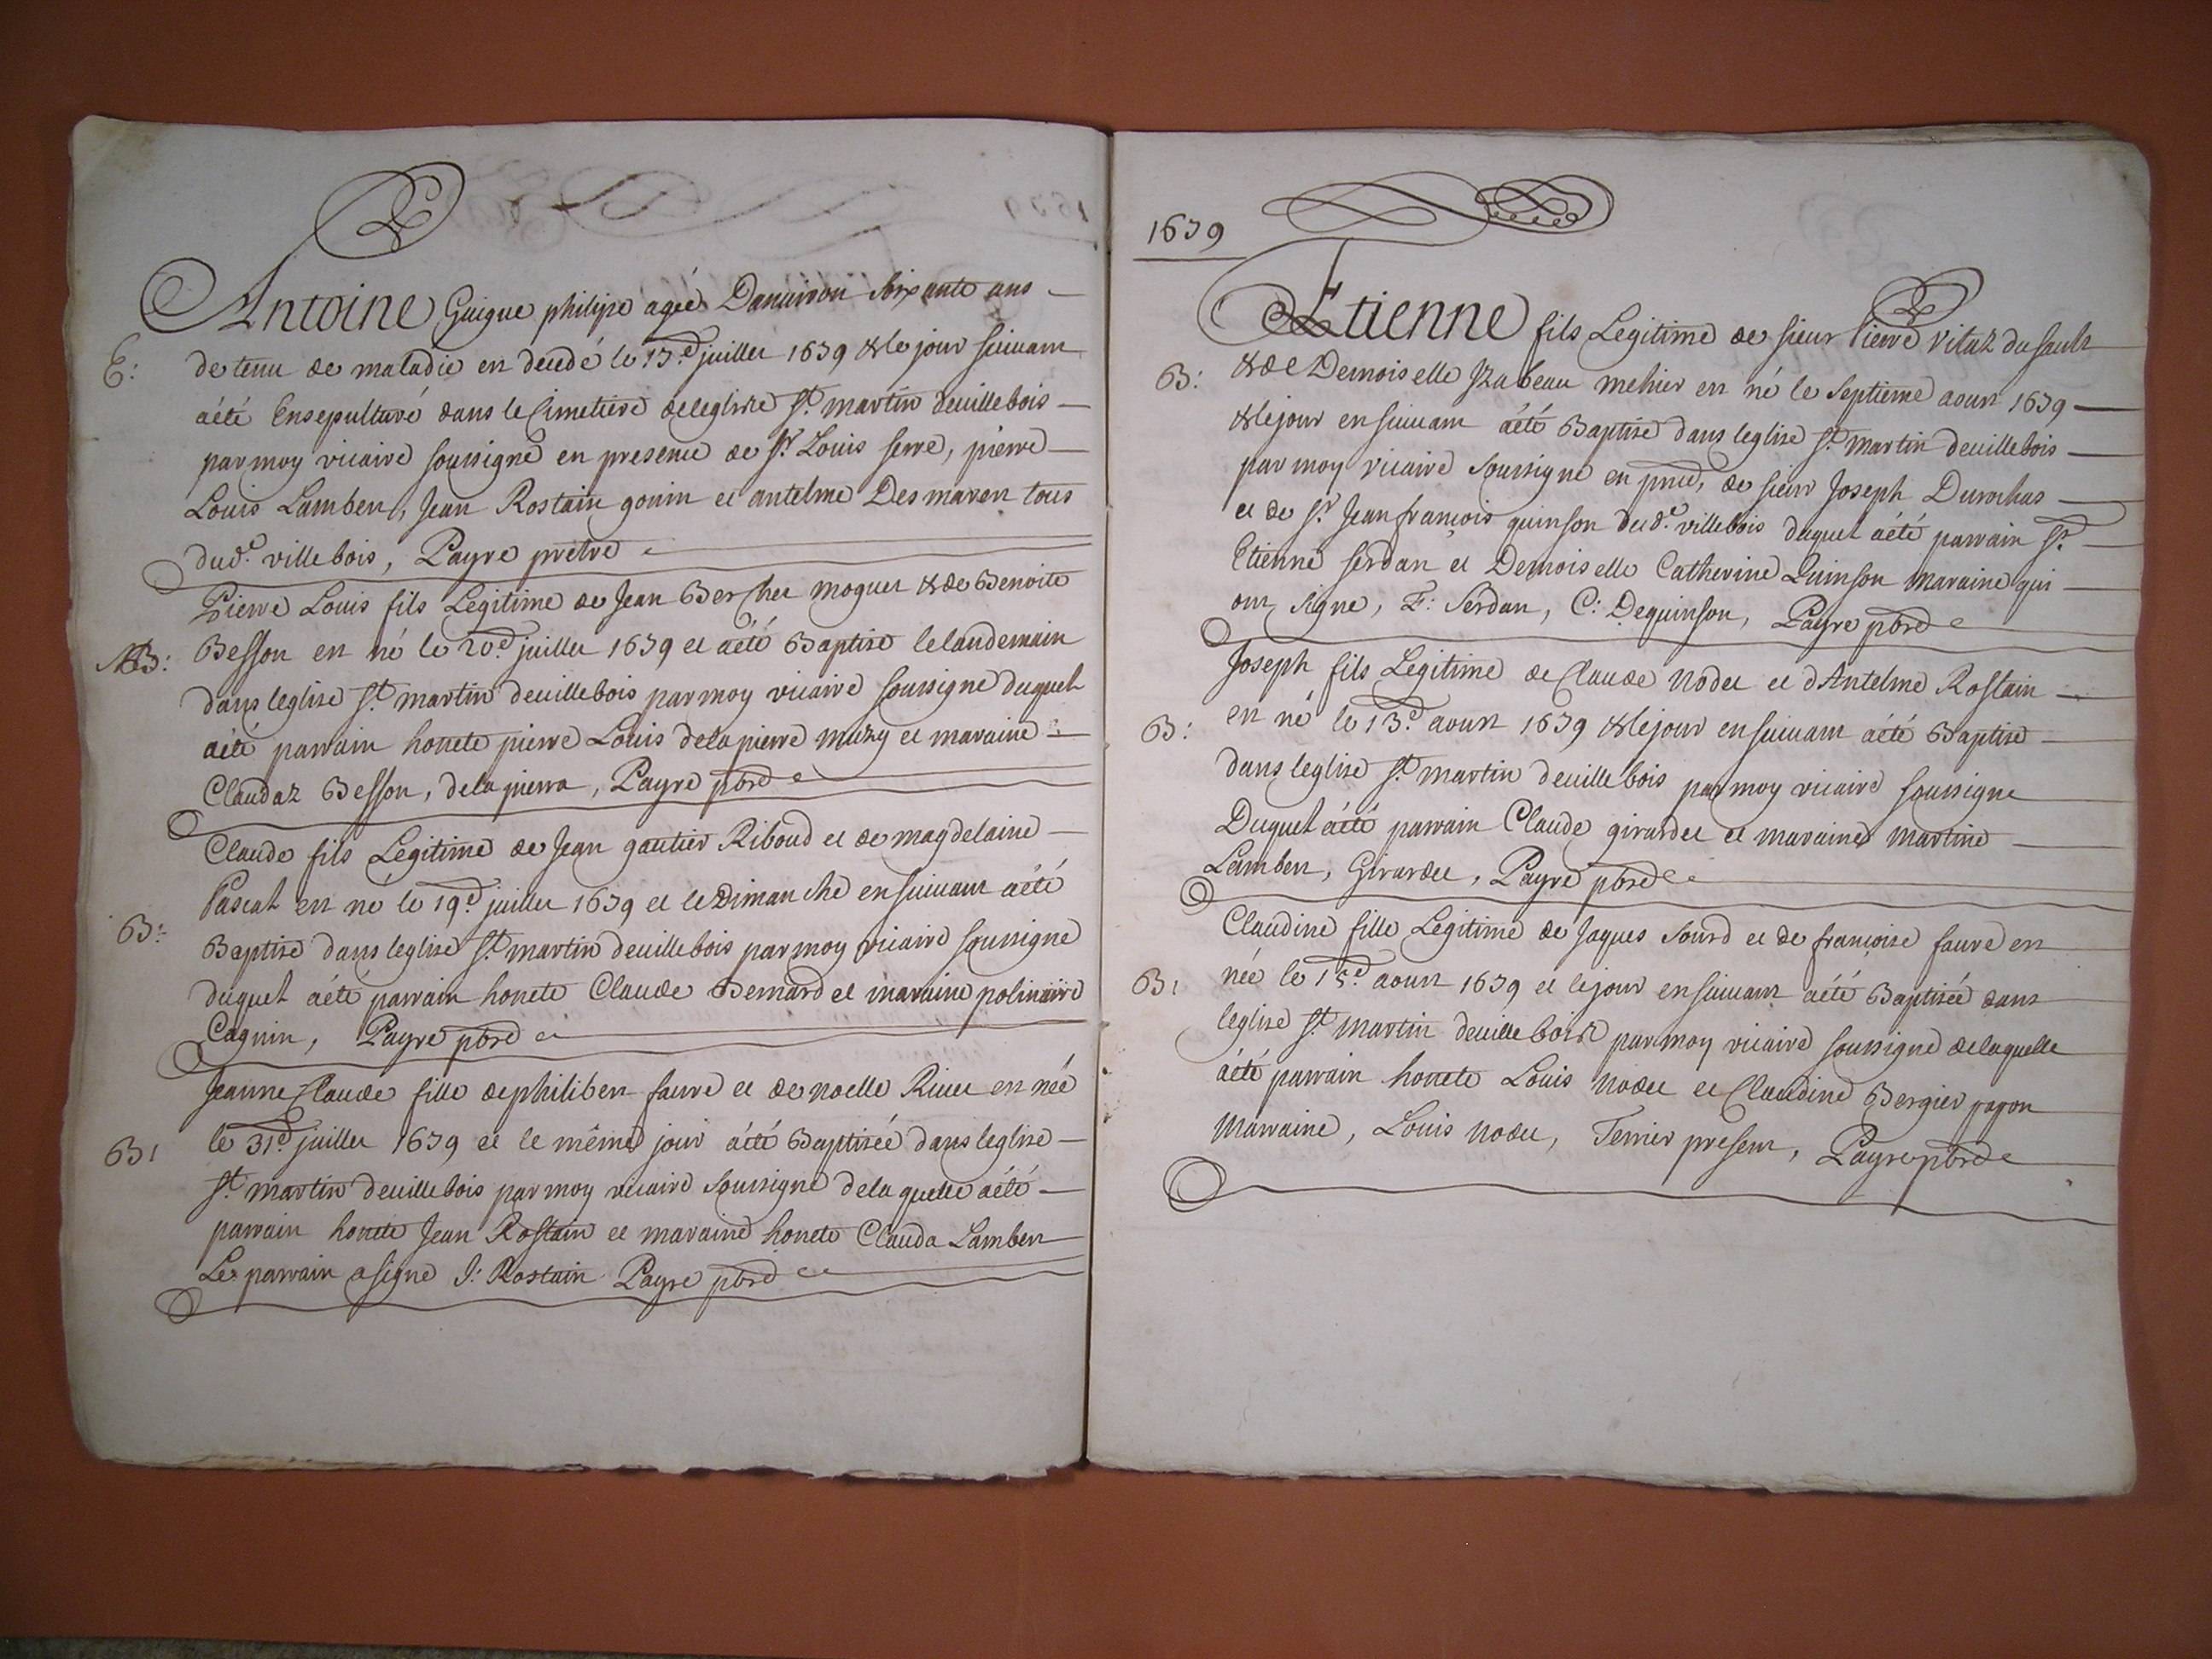 Antoine Guigue philipe agée Danuiron soixante ans
E: detenu de maladie en decedé le 13.e juillet 1639 & le jour suivant
a été Ensepulturé dans le Cimetiere de leglise St. martin deuillebois
par moy vicaire soussigné en presence de Sr. Louis serre, pierre
Louis Lambert, Jean Rostain gonin et antelme Desmaren tous
dud.e villebois, Payre prêtre
Pierre Louis fils Légitime de Jean Bercher moguet & de Benoite
B: Besson en né le 20.e juillet 1639 et a été Baptisé le landemain
dans leglise St. martin deuillebois par moy vicaire soussigné duquel
a été parrain honete pierre Louis delapierre muzy et maraine
Claudaz Besson, delapierra, Payre pbre
Claude fils Légitime de Jean gautier Riboud et de magdelaine
Pascat en né le 19.e juillet 1639 et le Dimanche ensuivant a été
B: Baptisé dans leglise St. martin deuillebois par moy vicaire soussigné
duquel a été parrain honete Claude Bernard et maraine polinaire
Cagnin, Payre pbre
Jeanne Claude fille de philibert favre et de noelle River en née
B: le 31.e juillet 1639 et le même jour a été Baptisée dans leglise
St. martin deuillebois par moy vicaire soussigné de laquelle a été
parrain honete Jean Rostain et maraine honete Clauda Lambert
Le parrain a signé J: Rostain Payre pbre
1639
Etienne fils Légitime de sieur Pierre vitaz dusault
B: & de Demoiselle Izabeau mehier en né le Septieme aoust 1639
& le jour ensuivant a été Baptisé dans leglise St. martin deuillebois
par moy vicaire soussigné en pnce, de sieur Joseph Durochas
et de Sr. Jean françois quinson dud.e villebois duquel a été parrain Sr.
Etienne serdan et Demoiselle Catherine Quinson maraine qui
ont signé, E: Serdan, C: Dequinson, Payre pbre
Joseph fils Légitime de Claude nodet et dAntelme Rostain
B: en né le 13.e aoust 1639 & le jour ensuivant a été Baptisé
dans leglise St. martin deuillebois par moy vicaire soussigné
Duquel a été parrain Claude girardet et maraine martine
Lambert, Girardet, Payre pbre
Claudine fille Légitime de Jaques Sourd et de françoise favre en
B: née le 15.e aoust 1639 et le jour ensuivant a été Baptisée dans
leglise St. martin deuillebois par moy vicaire soussigné de laquelle
a été parrain honete Louis nodet et Claudine Bergier papon
Marraine, Louis nodet, Terrier present, Payre pbre